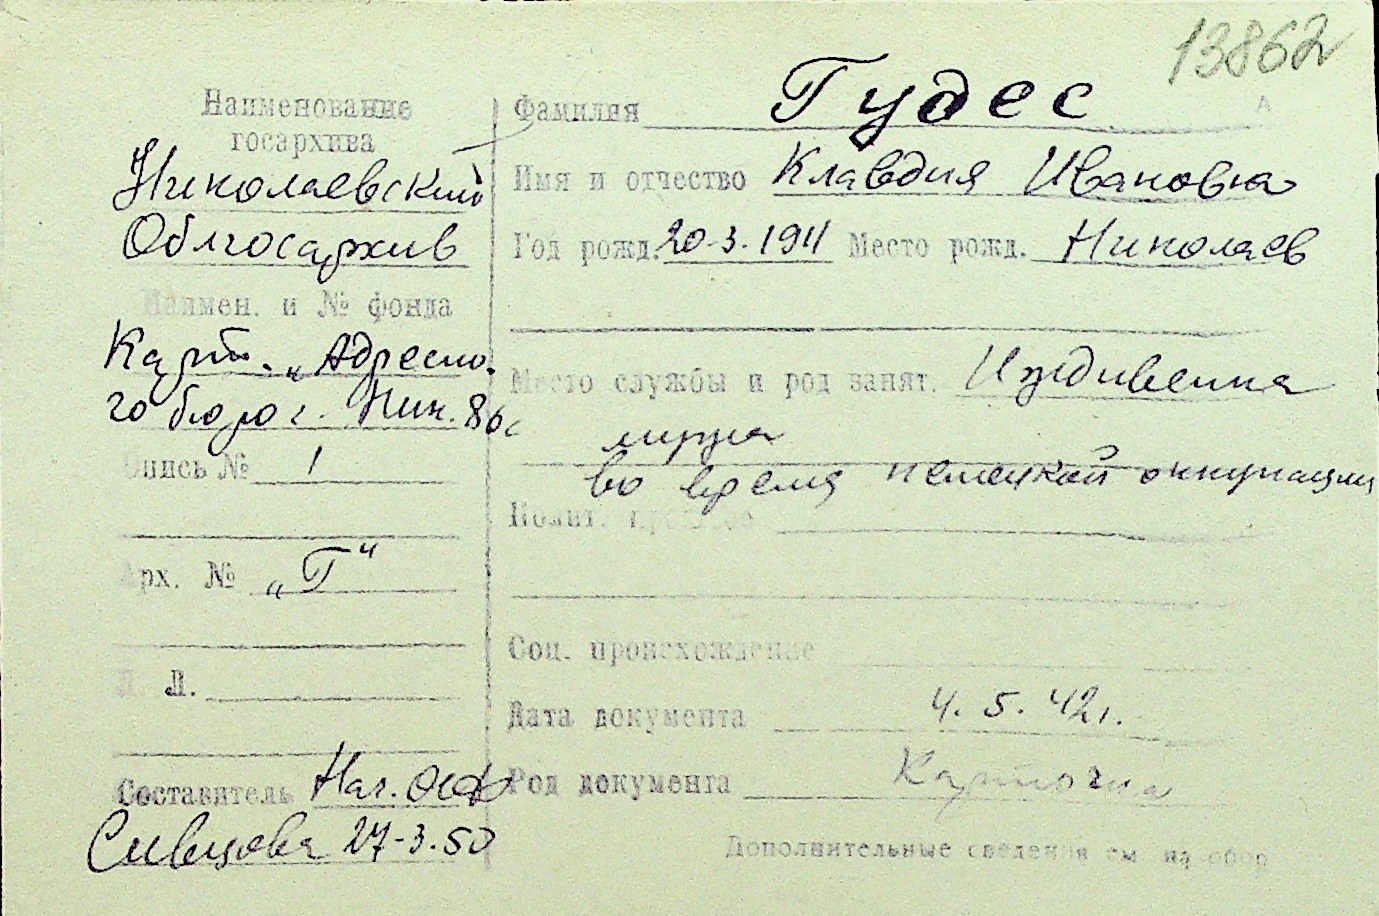 13862
Наименование
госархива
Николаевский
Облгосархив
Наимен. и № фонда
Карт. „Адресно-
го бюро г. Ник.
Опись № 1
Арх. № „Г“
Л. Л.
Составитель Нач. ОСФ
Сивцова 27-3.50
Фамилия Гудес
А
Имя и отчество Клавдия Ивановна
Год рожд. 20-3.1911 Место рожд. Николаев
Место службы и род занят. Иждивенка
мужа
во время немецкой оккупации
Полит.
Соц. происхождение
Дата документа 4. 5. 42г.
Род документа Карточка
Дополнительные сведения см на обор